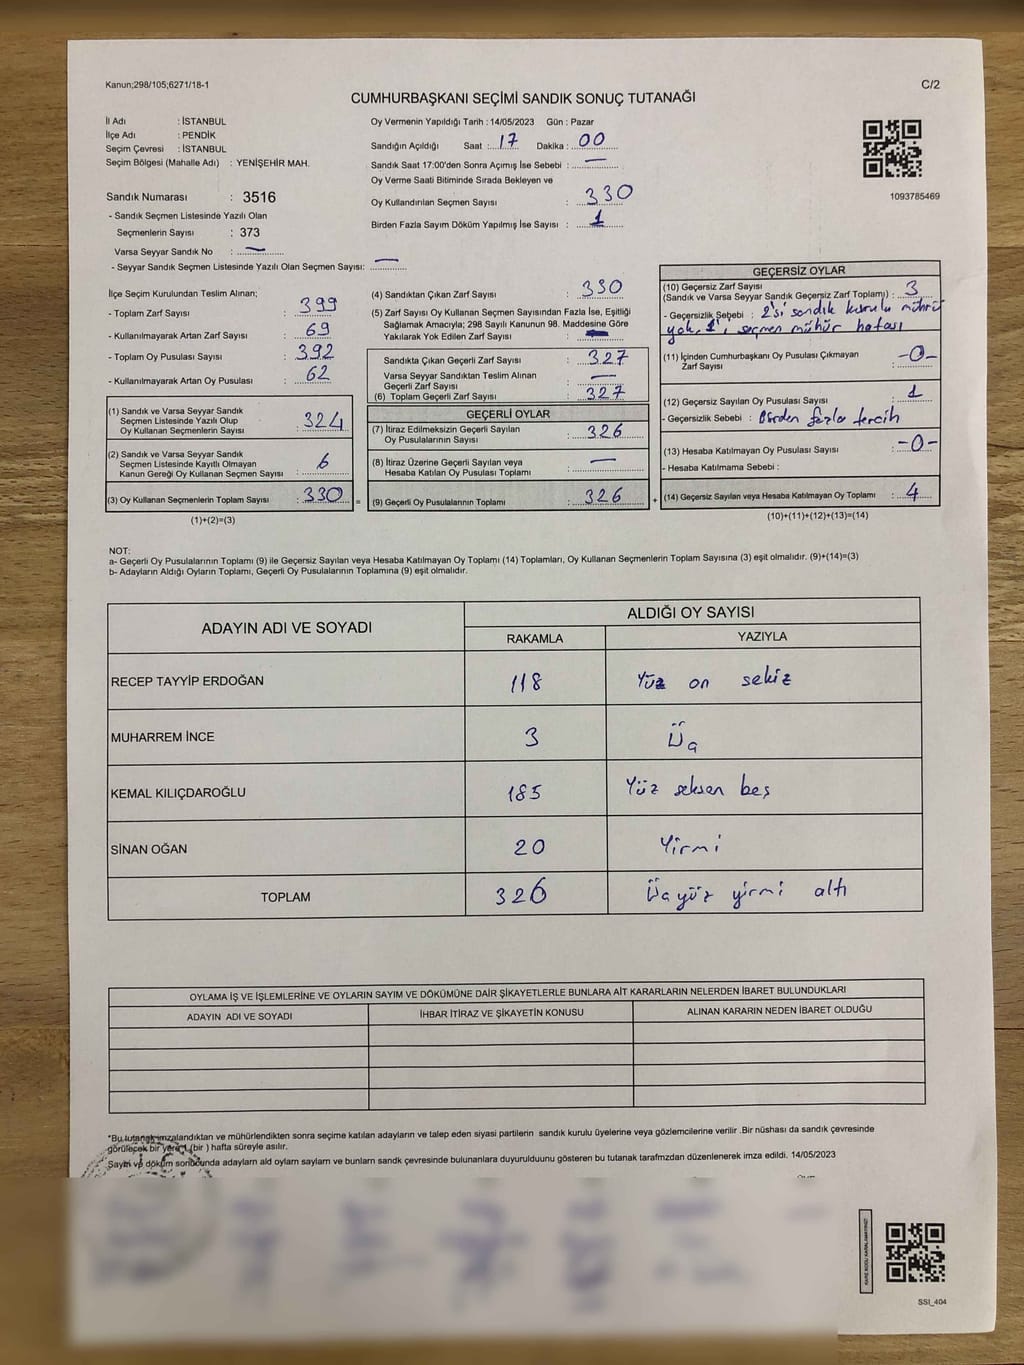 Kanun;298/105;6271/18-1
C/2
CUMHURBAŞKANI SEÇİMİ SANDIK SONUÇ TUTANAĞI
İl Adı : İSTANBUL
İlçe Adı : PENDİK
Seçim Çevresi : İSTANBUL
Seçim Bölgesi (Mahalle Adı) : YENİŞEHİR MAH.
Sandık Numarası : 3516
- Sandık Seçmen Listesinde Yazılı Olan
Seçmenlerin Sayısı : 373
Varsa Seyyar Sandık No : —
- Seyyar Sandık Seçmen Listesinde Yazılı Olan Seçmen Sayısı: —
Oy Vermenin Yapıldığı Tarih : 14/05/2023 Gün : Pazar
Sandığın Açıldığı Saat : 17 Dakika : 00
Sandık Saat 17:00'den Sonra Açımış İse Sebebi : —
Oy Verme Saati Bitiminde Sırada Bekleyen ve
Oy Kullandırılan Seçmen Sayısı : 330
Birden Fazla Sayım Döküm Yapılmış İse Sayısı : 1
1093785469
İlçe Seçim Kurulundan Teslim Alınan;
- Toplam Zarf Sayısı : 399
- Kullanılmayarak Artan Zarf Sayısı : 69
- Toplam Oy Pusulası Sayısı : 392
- Kullanılmayarak Artan Oy Pusulası : 62
(1) Sandık ve Varsa Seyyar Sandık
Seçmen Listesinde Yazılı Olup
Oy Kullanan Seçmenlerin Sayısı : 324
(2) Sandık ve Varsa Seyyar Sandık
Seçmen Listesinde Kayıtlı Olmayan
Kanun Gereği Oy Kullanan Seçmen Sayısı : 6
(3) Oy Kullanan Seçmenlerin Toplam Sayısı : 330
(1)+(2)=(3)
=
(4) Sandıktan Çıkan Zarf Sayısı : 330
(5) Zarf Sayısı Oy Kullanan Seçmen Sayısından Fazla İse, Eşitliği
Sağlamak Amacıyla; 298 Sayılı Kanunun 98. Maddesine Göre
Yakılarak Yok Edilen Zarf Sayısı :
Sandıkta Çıkan Geçerli Zarf Sayısı : 327
Varsa Seyyar Sandıktan Teslim Alınan
Geçerli Zarf Sayısı : —
(6) Toplam Geçerli Zarf Sayısı : 327
GEÇERLİ OYLAR
(7) İtiraz Edilmeksizin Geçerli Sayılan
Oy Pusulalarının Sayısı : 326
(8) İtiraz Üzerine Geçerli Sayılan veya
Hesaba Katılan Oy Pusulası Toplamı : —
(9) Geçerli Oy Pusulalarının Toplamı : 326
+
GEÇERSİZ OYLAR
(10) Geçersiz Zarf Sayısı
(Sandık ve Varsa Seyyar Sandık Geçersiz Zarf Toplamı) : 3
- Geçersizlik Sebebi : 2'si sandık kurulu mührü
yok. 1'i seçmen mühür hatası
(11) İçinden Cumhurbaşkanı Oy Pusulası Çıkmayan
Zarf Sayısı : -0-
(12) Geçersiz Sayılan Oy Pusulası Sayısı : 1
- Geçersizlik Sebebi : Birden fazla tercih
(13) Hesaba Katılmayan Oy Pusulası Sayısı : -0-
- Hesaba Katılmama Sebebi :
(14) Geçersiz Sayılan veya Hesaba Katılmayan Oy Toplamı : 4
(10)+(11)+(12)+(13)=(14)
NOT:
a- Geçerli Oy Pusulalarının Toplamı (9) ile Geçersiz Sayılan veya Hesaba Katılmayan Oy Toplamı (14) Toplamları, Oy Kullanan Seçmenlerin Toplam Sayısına (3) eşit olmalıdır. (9)+(14)=(3)
b- Adayların Aldığı Oyların Toplamı, Geçerli Oy Pusulalarının Toplamına (9) eşit olmalıdır.
ADAYIN ADI VE SOYADI ALDIĞI OY SAYISI
RAKAMLA YAZIYLA
RECEP TAYYİP ERDOĞAN 118 Yüz on sekiz
MUHARREM İNCE 3 Üç
KEMAL KILIÇDAROĞLU 185 Yüz seksen beş
SİNAN OĞAN 20 Yirmi
TOPLAM 326 Üçyüz yirmi altı
OYLAMA İŞ VE İŞLEMLERİNE VE OYLARIN SAYIM VE DÖKÜMÜNE DAİR ŞİKAYETLERLE BUNLARA AİT KARARLARIN NELERDEN İBARET BULUNDUKLARI
ADAYIN ADI VE SOYADI İHBAR İTİRAZ VE ŞİKAYETİN KONUSU ALINAN KARARIN NEDEN İBARET OLDUĞU
*Bu tutanak imzalandıktan ve mühürlendikten sonra seçime katılan adayların ve talep eden siyasi partilerin sandık kurulu üyelerine veya gözlemcilerine verilir .Bir nüshası da sandık çevresinde
görülecek bir yere 1 (bir ) hafta süreyle asılır.
Sayım ve döküm sonucunda adayların ald oylam sayların ve bunların sandk çevresinde bulunanlara duyurulduunu gösteren bu tutanak tarafmzdan düzenlenerek imza edildi. 14/05/2023
SSI_404